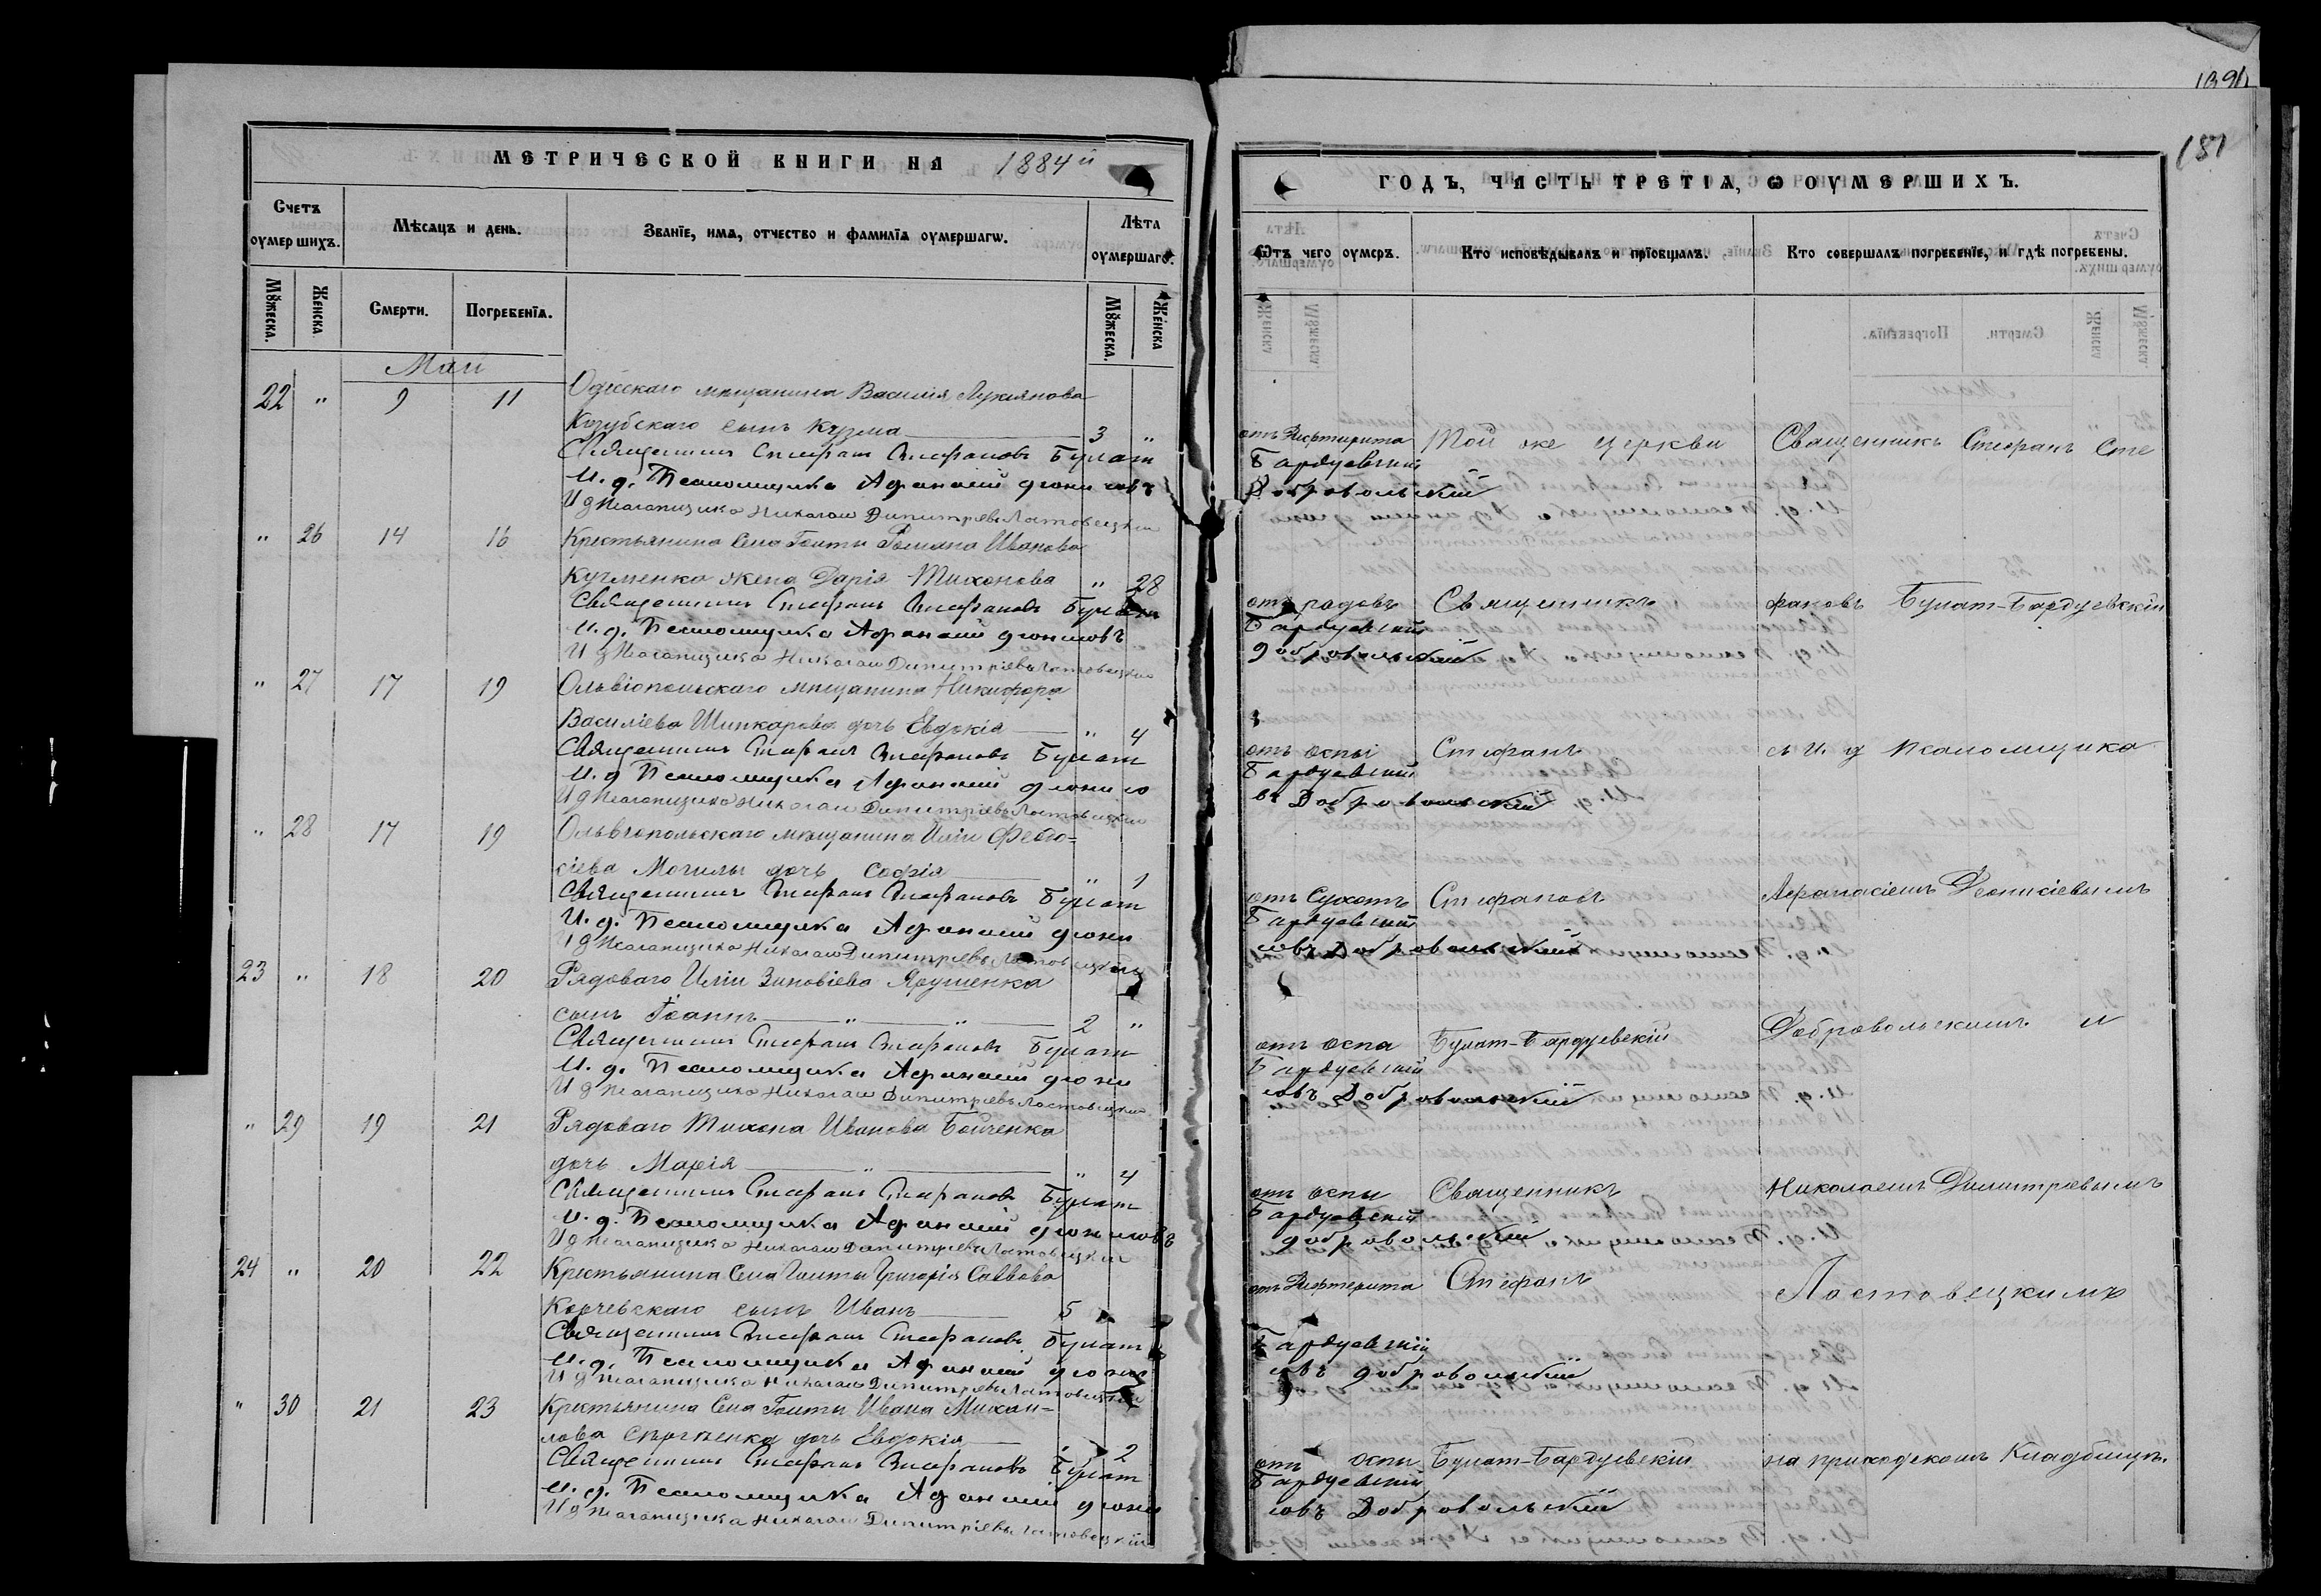 МЕТРИЧЕСКОЙ КНИГИ НА 1884й
ГОДЪ, ЧАСТЬ ТРЕТІѦ, Ѡ ОУМЕРШИХЪ.
187
Счетъ оумершихъ.
Мѣсяцъ и день.
Званїе, имѧ, отчество и фамилїѧ оумершагѡ.
Лѣта оумершагѡ.
Ѿтъ чего оумеръ.
Кто исповѣдывалъ и прїобщалъ.
Кто совершалъ погребенїе, и гдѣ погребены.
Мꙋжеска.
Женска.
Смерти.
Погребенїѧ.
Мꙋжеска.
Женска
Май
22 " 9 11 Одесскаго мѣщанина Василія Лукіянова
Козубскаго сынъ Кузма 3 " отъ Дифтирита Той же церкви Священникъ Стефанъ Сте
Священникъ Стефанъ Стефановъ Булат Бардуевский
И. д. Псаломщика Афанасий Дионисовъ Добровольский
И д Псаломщика Николай Димитріевъ Ластовецкий
" 26 14 16 Крестьянина Села Гоиты Романа Иванова
Кучменка жена Дарія Тихонова " 28 отъ родовъ Священникъ фановъ Булат-Бардуевскій
Священникъ Стефанъ Стефановъ Булат Бардуевский
И. д. Псаломщика Афанасий Дионисовъ Добровольский
И д Псаломщика Николай Димитріевъ Ластовецкий
" 27 17 19 Ольвіопольскаго мѣщанина Никифора
Василіева Шинкарова дочь Евдокія " 4 отъ оспы Стефанъ съ И. д Псаломщика
Священникъ Стефанъ Стефановъ Булат Бардуевский
И. д Псаломщика Афанасий Дионисо въ Добровольский
И д Псаломщика Николай Димитріевъ Ластовецкий
" 28 17 19 Ольвіопольскаго мѣщанина Иліи Ѳеодо-
сіева Могилы дочь Софія " 1 отъ Сухотъ Стефановъ Афанасіемъ Діонисіевымъ
Священникъ Стефанъ Стефановъ Булат Бардуевский
И. д. Псаломщика Афанасий Диони совъ Добровольский
И д Псаломщика Николай Димитріевъ Ластовецкий
23 " 18 20 Рядоваго Иліи Зиновіева Ярушенка
сынъ Іоаннъ " " 2 " отъ оспа Булат-Бардуевскій Добровольскимъ и
Священникъ Стефанъ Стефановъ Булат Бардуевский
И. д. Псаломщика Афанасий Диони совъ Добровольский
И д Псаломщика Николай Димитріевъ Ластовецкий
" 29 19 21 Рядоваго Тихона Иванова Бойченка
дочь Марія " " 4 отъ оспы Священникъ Николаемъ Димитріевымъ
Священникъ Стефанъ Стефановъ Булат Бардуевский
И. д. Псаломщика Афанасий Дионисовъ Добровольский
И д Псаломщика Николай Димитріевъ Ластовецкий
24 " 20 22 Крестьянина Села Гоиты Григорія Саввова
Корчевскаго сынъ Иванъ 5 отъ Дифтерита Стефанъ Ластовецкимъ
Священникъ Стефанъ Стефановъ Булат Бардуевский
И. д. Псаломщика Афанасий Диони совъ Добровольский
И д Псаломщика Николай Димитріевъ Ластовецкий
" 30 21 23 Крестьянина Села Гоиты Ивана Михаи-
лова дочь Евдокія 2 отъ оспы Булат-Бардуевскій на приходскомъ Кладбищѣ.
Священникъ Стефанъ Стефановъ Булат Бардуевский
И. д. Псаломщика Афанасий Диони совъ Добровольский
И д Псаломщика Николай Димитріевъ Ластовецкий